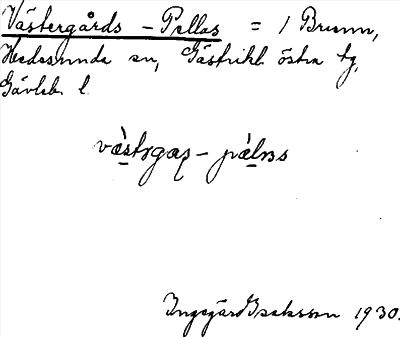 Västergårds - Pellas = 1 Brunn,
Hedesunda sn, Gästrikl. östra tg,
Gävleb. l.
væ̀stərgaʂ - pæ̀l̯as
Ingegärd Isaksson 1930.